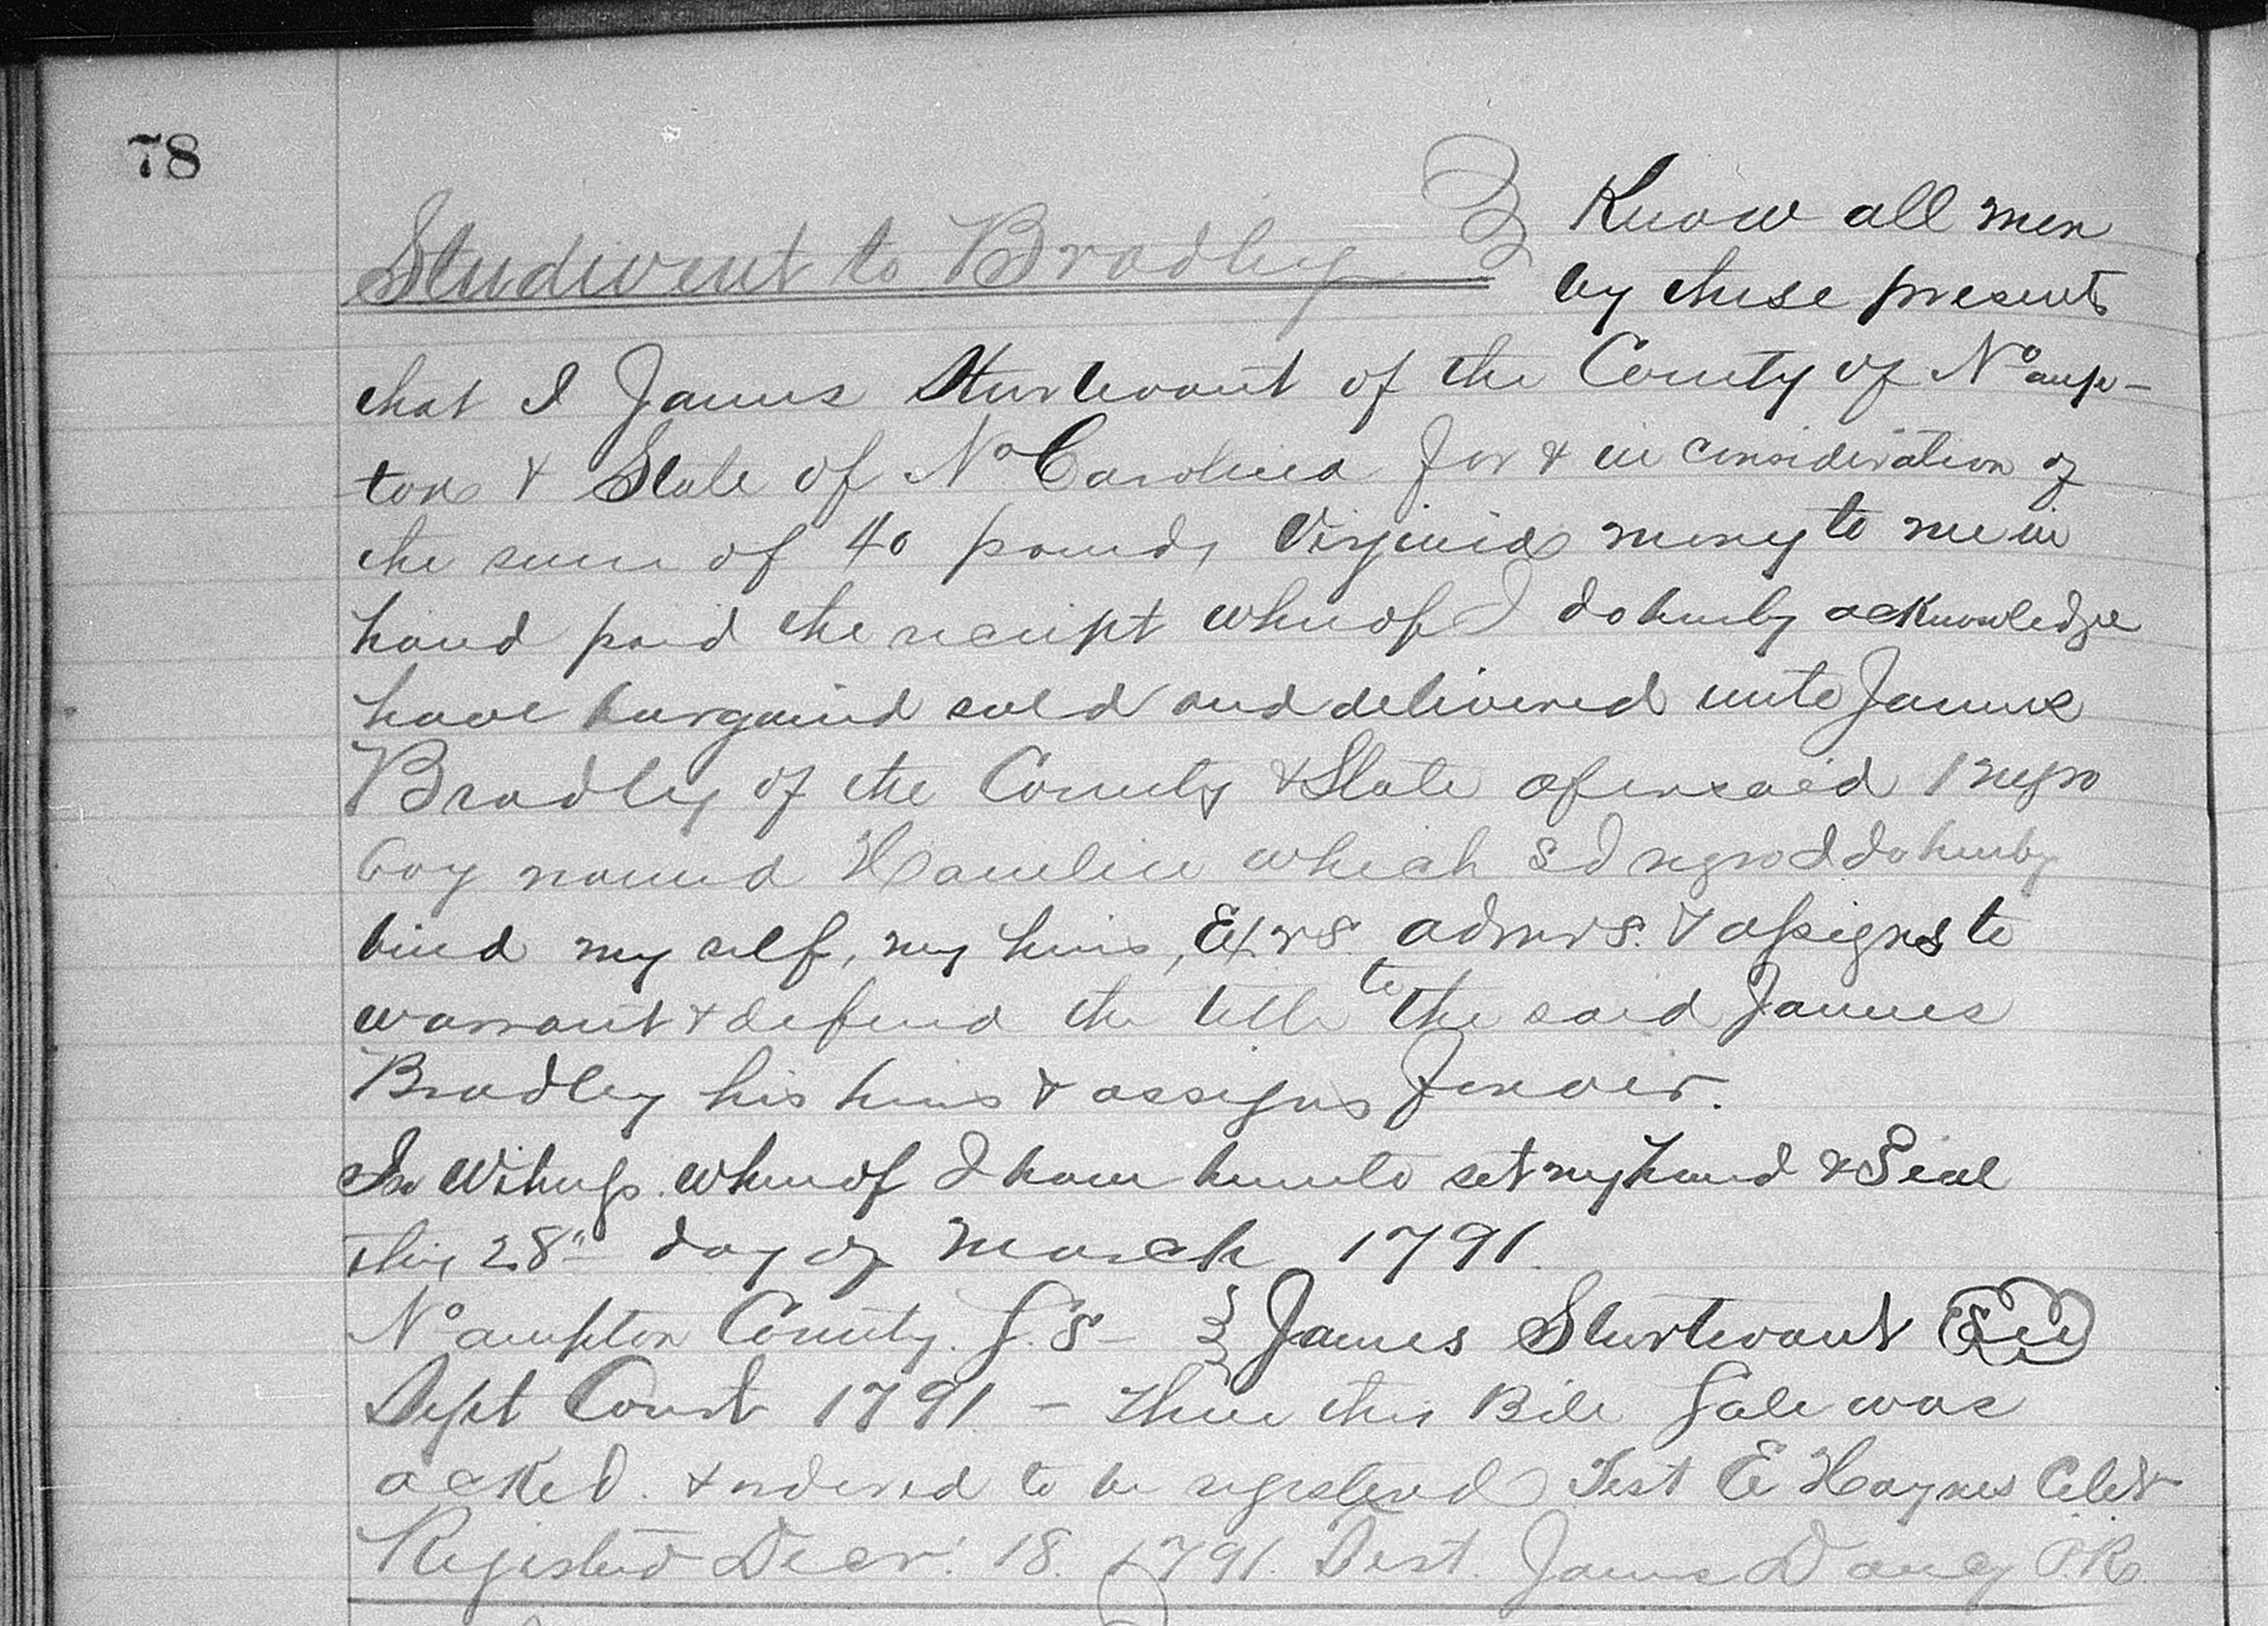 78
Studivent to Bradley
Know all men
by these presents
that I James Sturtevant of the County of No amp-
ton & State of No Carolina for & in consideration of
the sum of 40 pounds Virginia money to me in
hand paid the receipt whereof I do hereby acknowledge
have bargaind sold and delivered unto James
Bradley of the County & State aforesaid 1 negro
boy named Hamlin which sd negro I do hereby
bind my self, my heirs, Exrs. admrs. & assigns to
warrant & defend the title to the said James
Bradley his heirs & assigns forever.
In Witness whereof I have hereunto set my hand & Seal
this 28th day of March 1791.
No ampton County S. S - } James Sturtevant Seal
Sept Court 1791 - Then this Bill Sale was
acked. & ordered to be registered Test E Haynes Clk
Registered Decr. 18. 1791. Test. James Dancy P.R.